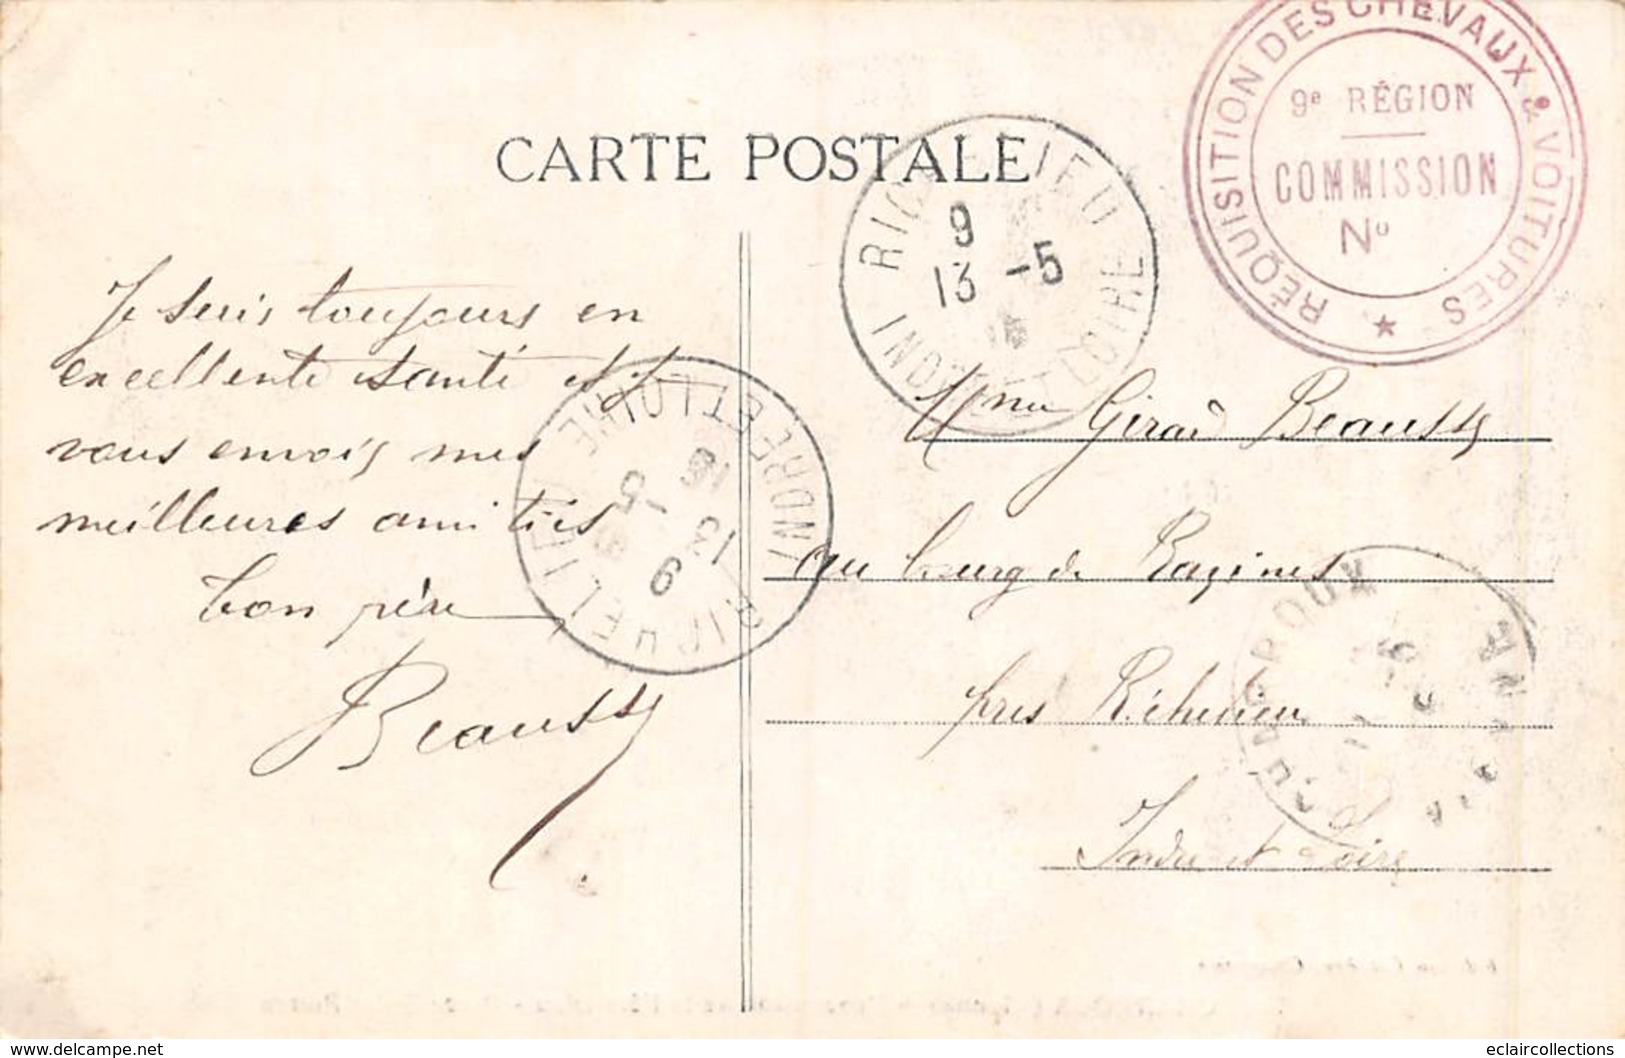 CARTE POSTALE
RÉQUISITION DES CHEVAUX & VOITURES
9e RÉGION
COMMISSION
No
RICHELIEU
9
13 -5
INDRE ET LOIRE
Je suis toujours en
excellente santé et je
vous envois mes
meilleures amitiés
ton père
Beaussy
RICHELIEU
9
13 -5
16
INDRE ET LOIRE
Mme Girard Beaussy
au bourg de Razines
près Richelieu
Indre et Loire
eclaircollections